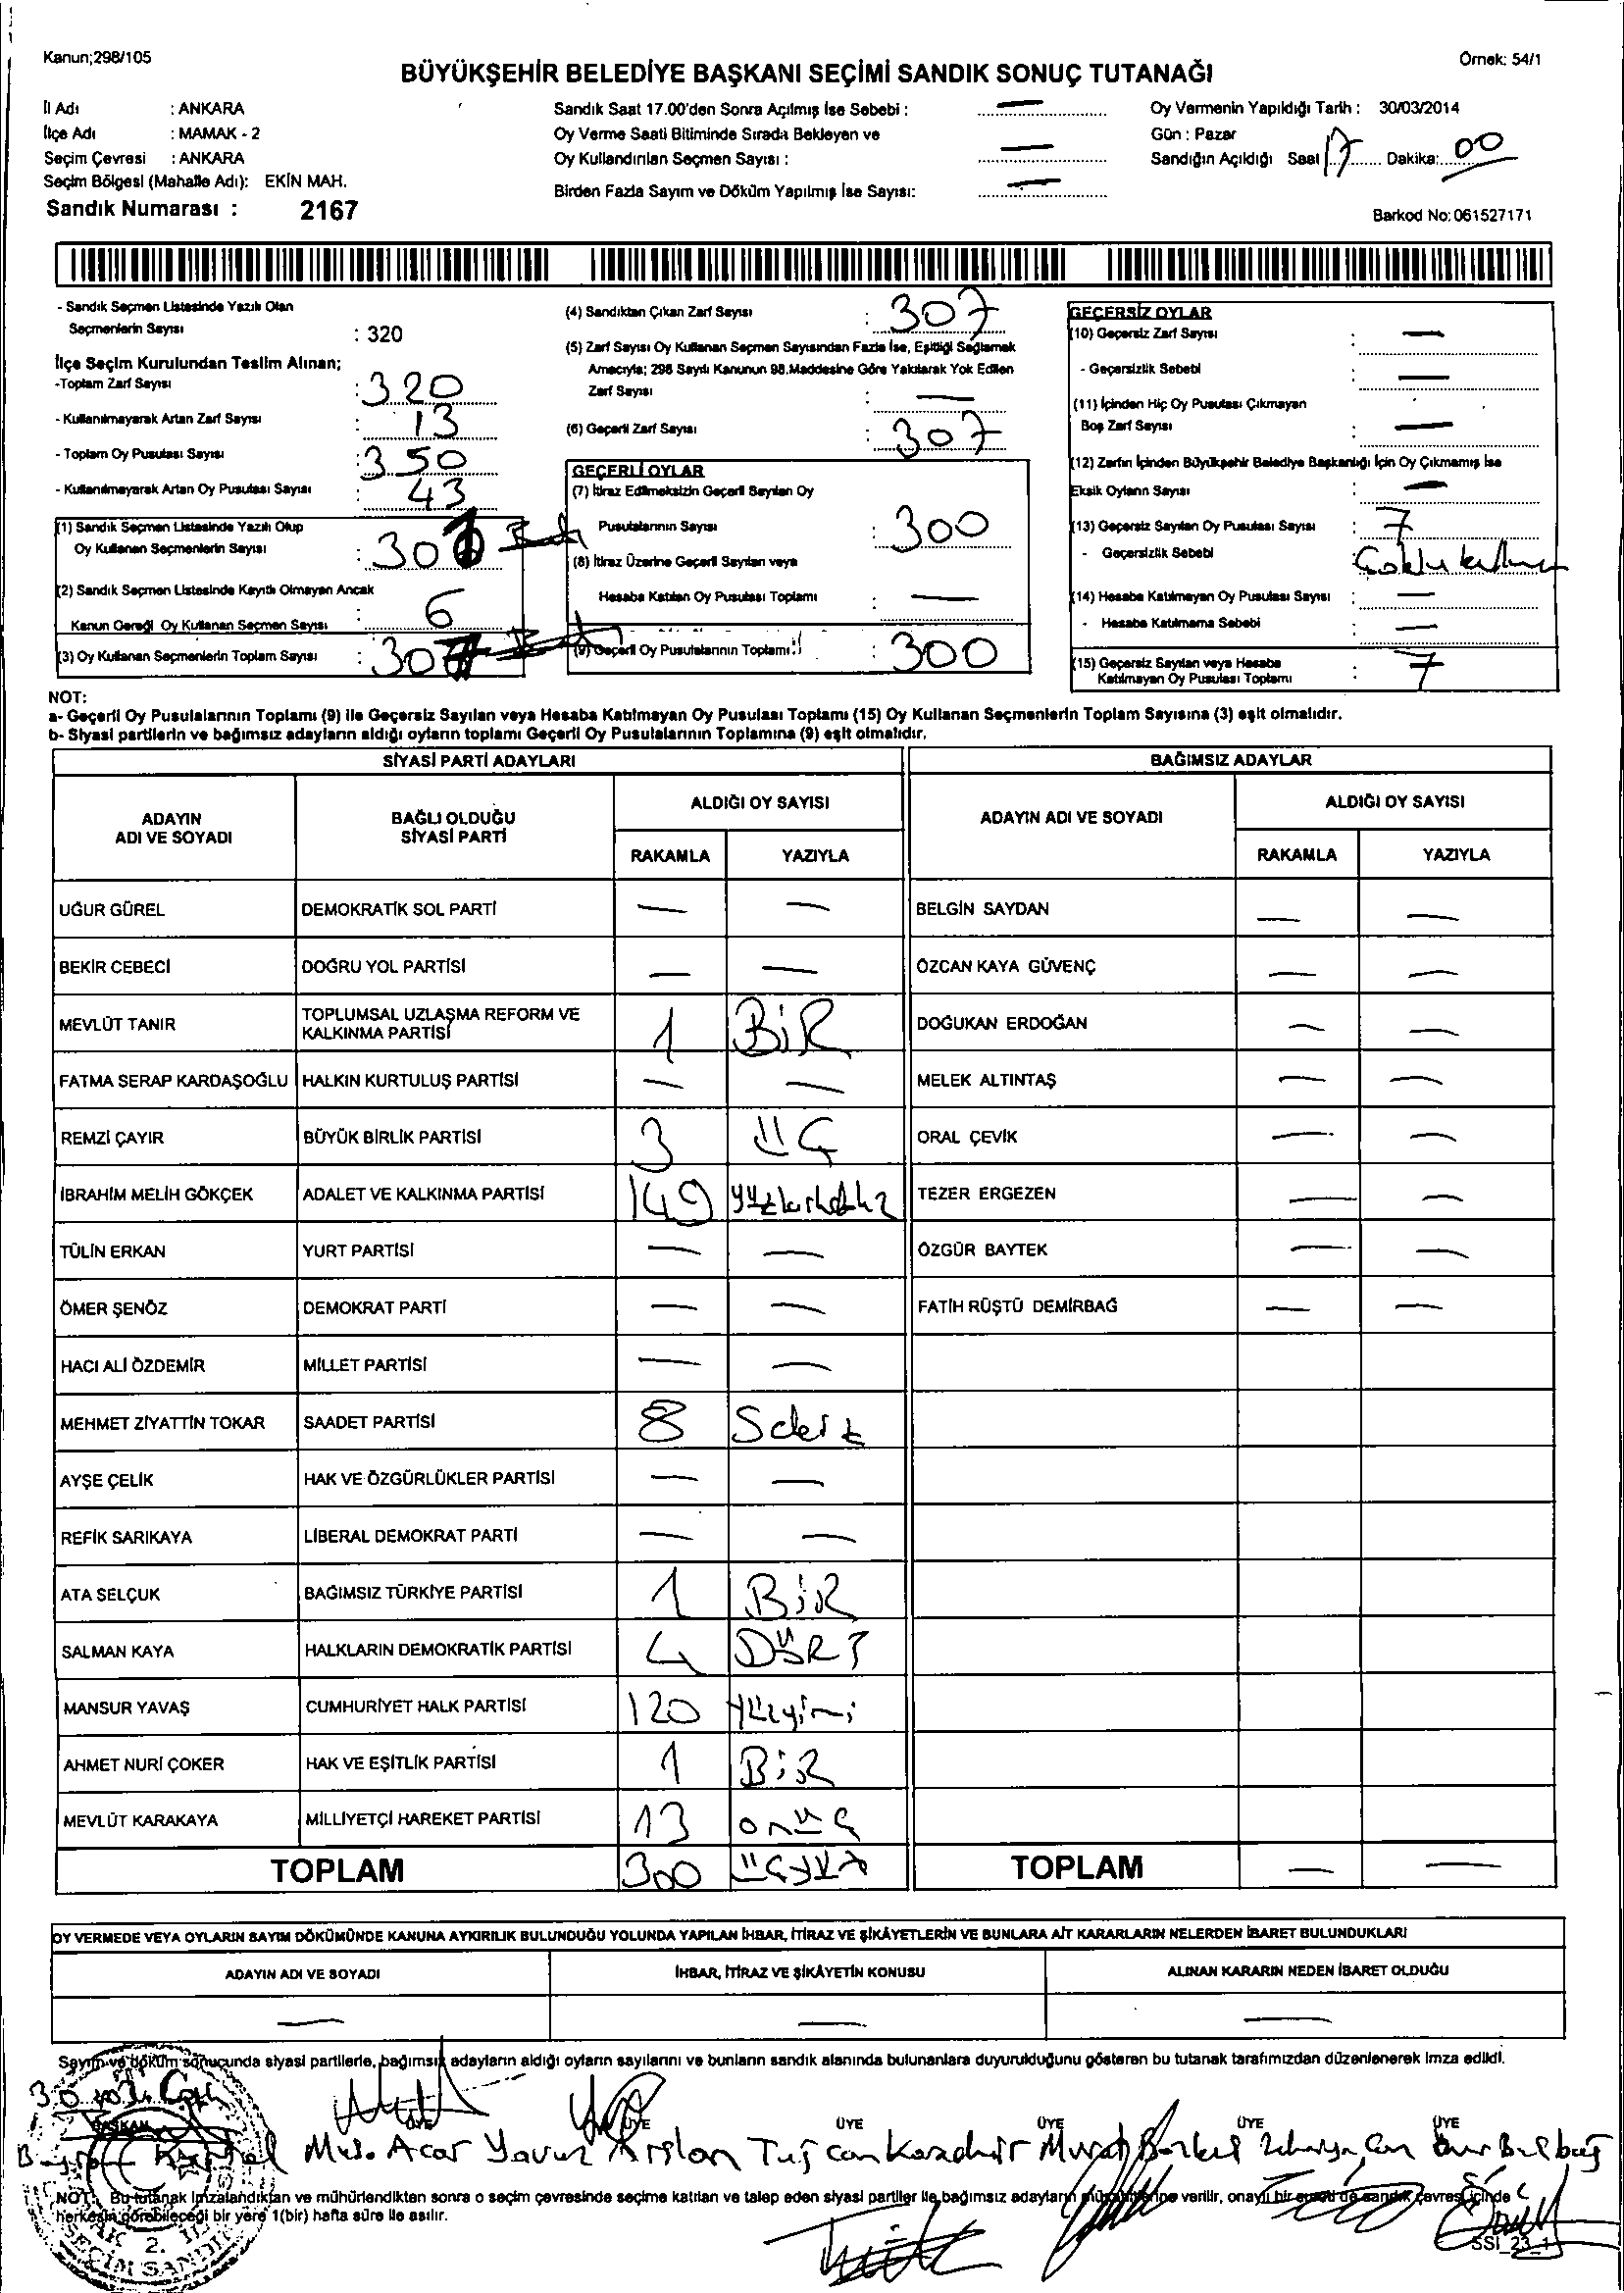 Kanun;298/105
Örnek: 54/1
BÜYÜKŞEHİR BELEDİYE BAŞKANI SEÇİMİ SANDIK SONUÇ TUTANAĞI
İl Adı : ANKARA
İlçe Adı : MAMAK - 2
Seçim Çevresi : ANKARA
Seçim Bölgesi (Mahalle Adı): EKİN MAH.
Sandık Numarası : 2167
Sandık Saat 17.00'den Sonra Açılmış İse Sebebi : —
Oy Verme Saati Bitiminde Sırada Bekleyen ve
Oy Kullandırılan Seçmen Sayısı : —
Birden Fazla Sayım ve Döküm Yapılmış İse Sayısı: —
Oy Vermenin Yapıldığı Tarih : 30/03/2014
Gün : Pazar
Sandığın Açıldığı Saat 17 Dakika: 00
Barkod No: 061527171
- Sandık Seçmen Listesinde Yazılı Olan
Seçmenlerin Sayısı : 320
İlçe Seçim Kurulundan Teslim Alınan;
-Toplam Zarf Sayısı : 320
- Kullanılmayarak Artan Zarf Sayısı : 13
- Toplam Oy Pusulası Sayısı : 350
- Kullanılmayarak Artan Oy Pusulası Sayısı : 43
(1) Sandık Seçmen Listesinde Yazılı Olup
Oy Kullanan Seçmenlerin Sayısı : 301
(2) Sandık Seçmen Listesinde Kayıtlı Olmayan Ancak
Kanun Gereği Oy Kullanan Seçmen Sayısı : 6
(3) Oy Kullanan Seçmenlerin Toplam Sayısı : 307
(4) Sandıktan Çıkan Zarf Sayısı : 307
(5) Zarf Sayısı Oy Kullanan Seçmen Sayısından Fazla İse, Eşitliği Sağlamak
Amacıyla; 298 Sayılı Kanunun 98.Maddesine Göre Yakılarak Yok Edilen
Zarf Sayısı : —
(6) Geçerli Zarf Sayısı : 307
GEÇERLİ OYLAR
(7) İtiraz Edilmeksizin Geçerli Sayılan Oy
Pusulalarının Sayısı : 300
(8) İtiraz Üzerine Geçerli Sayılan veya
Hesaba Katılan Oy Pusulası Toplamı : —
(9) Geçerli Oy Pusulalarının Toplamı : 300
GEÇERSİZ OYLAR
(10) Geçersiz Zarf Sayısı : —
- Geçersizlik Sebebi : —
(11) İçinden Hiç Oy Pusulası Çıkmayan
Boş Zarf Sayısı : —
(12) Zarfın İçinden Büyükşehir Belediye Başkanlığı İçin Oy Çıkmamış İse
Eksik Oyların Sayısı : —
(13) Geçersiz Sayılan Oy Pusulası Sayısı : 7
- Geçersizlik Sebebi
(14) Hesaba Katılmayan Oy Pusulası Sayısı : —
- Hesaba Katılmama Sebebi : —
(15) Geçersiz Sayılan veya Hesaba
Katılmayan Oy Pusulası Toplamı : 7
NOT:
a- Geçerli Oy Pusulalarının Toplamı (9) ile Geçersiz Sayılan veya Hesaba Katılmayan Oy Pusulası Toplamı (15) Oy Kullanan Seçmenlerin Toplam Sayısına (3) eşit olmalıdır.
b- Siyasi partilerin ve bağımsız adayların aldığı oyların toplamı Geçerli Oy Pusulalarının Toplamına (9) eşit olmalıdır.
SİYASİ PARTİ ADAYLARI
ADAYIN ADI VE SOYADI BAĞLI OLDUĞU SİYASİ PARTİ ALDIĞI OY SAYISI RAKAMLA YAZIYLA
UĞUR GÜREL DEMOKRATİK SOL PARTİ — —
BEKİR CEBECİ DOĞRU YOL PARTİSİ — —
MEVLÜT TANIR TOPLUMSAL UZLAŞMA REFORM VE KALKINMA PARTİSİ 1 BİR
FATMA SERAP KARDAŞOĞLU HALKIN KURTULUŞ PARTİSİ — —
REMZİ ÇAYIR BÜYÜK BİRLİK PARTİSİ 3 ÜÇ
İBRAHİM MELİH GÖKÇEK ADALET VE KALKINMA PARTİSİ 149
TÜLİN ERKAN YURT PARTİSİ — —
ÖMER ŞENÖZ DEMOKRAT PARTİ — —
HACI ALİ ÖZDEMİR MİLLET PARTİSİ — —
MEHMET ZİYATTİN TOKAR SAADET PARTİSİ 8 Sekiz
AYŞE ÇELİK HAK VE ÖZGÜRLÜKLER PARTİSİ — —
REFİK SARIKAYA LİBERAL DEMOKRAT PARTİ — —
ATA SELÇUK BAĞIMSIZ TÜRKİYE PARTİSİ 1 BİR
SALMAN KAYA HALKLARIN DEMOKRATİK PARTİSİ 4 DÖRT
MANSUR YAVAŞ CUMHURİYET HALK PARTİSİ 120 yüzyirmi
AHMET NURİ ÇOKER HAK VE EŞİTLİK PARTİSİ 1 BİR
MEVLÜT KARAKAYA MİLLİYETÇİ HAREKET PARTİSİ 13 onüç
TOPLAM 300 üçyüz
BAĞIMSIZ ADAYLAR
ADAYIN ADI VE SOYADI ALDIĞI OY SAYISI RAKAMLA YAZIYLA
BELGİN SAYDAN — —
ÖZCAN KAYA GÜVENÇ — —
DOĞUKAN ERDOĞAN — —
MELEK ALTINTAŞ — —
ORAL ÇEVİK — —
TEZER ERGEZEN — —
ÖZGÜR BAYTEK — —
FATİH RÜŞTÜ DEMİRBAĞ — —
TOPLAM — —
OY VERMEDE VEYA OYLARIN SAYIM DÖKÜMÜNDE KANUNA AYKIRILIK BULUNDUĞU YOLUNDA YAPILAN İHBAR, İTİRAZ VE ŞİKÂYETLERİN VE BUNLARA AİT KARARLARIN NELERDEN İBARET BULUNDUKLARI
ADAYIN ADI VE SOYADI İHBAR, İTİRAZ VE ŞİKÂYETİN KONUSU ALINAN KARARIN NEDEN İBARET OLDUĞU
— — —
Sayım ve döküm sonucunda siyasi partilerle, bağımsız adayların aldığı oyların sayılarını ve bunların sandık alanında bulunanlara duyurulduğunu gösteren bu tutanak tarafımızdan düzenlenerek imza edildi.
BAŞKAN ÜYE ÜYE ÜYE ÜYE ÜYE ÜYE
Acar Yavuz Arslan Murat
NOT: Bu tutanak imzalandıktan ve mühürlendikten sonra o seçim çevresinde seçime katılan ve talep eden siyasi partiler ile bağımsız adayların müşahitlerine verilir, onaylı bir sureti de sandık çevresi içinde
herkesin görebileceği bir yere 1(bir) hafta süre ile asılır.
SSI_23_1